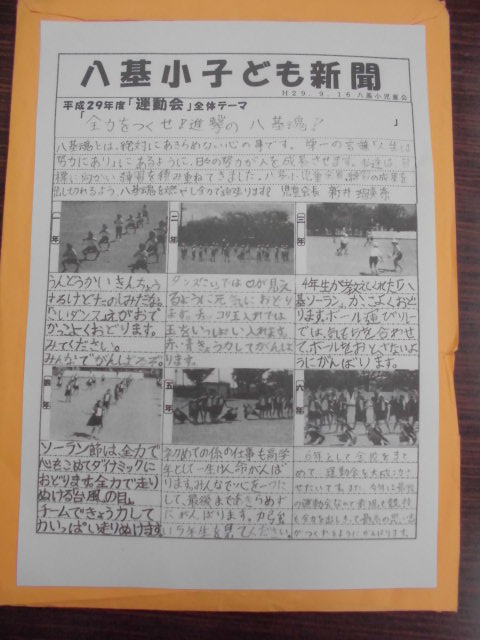 八基小子ども新聞
H29.9.16 八基小児童会
平成29年度「運動会」全体テーマ
「全力をつくせ!!進撃の八基魂!!」
八基魂とは、絶対にあきらめない心の事です。
努力にあり」に あるように、日々の努力が人を成長させます。
標に向かい 練習を積み重ねてきました。
出し切れるよう、八基魂を燃やし全力で頑張ります!! 児童会長 新井
一年
うんどうかい きんちょう
するけどたのしみだな。
ダンスえがおで
かっこよくおどります。
みてください。
みんなでがんばるぞ。
二年
ダンスについては口が見え
るように元気におどり
ます。玉入れでは
玉をいっぱい入れます。
赤、青きょう力してがんば
ります。
三年
4年生が教えてくれた「八
基ソーラン」、かっこよくおど
ります。ボール運びリレー
では、気もちを合わせ
て、ボールをおとさないよ
うにがんばります。
四年
ソーラン節は、全力で
心をこめてダイナミックに
おどります。全力で走り
ぬける台風の目。
チームできょう力して
力いっぱい走りぬけます。
五年
初めての係の仕事も高学
年として一生けん命がんば
ります。みんなで心を一つに
して、最後まであきらめず
にがんばります。
5年生を見てください。
六年
6年生として全校をまと
めて、運動会を大成功さ
せたいです。また、今年は最後
の運動会なので表現も競技
も全力を出しきって最高の思い出
がつくれるようにがんばります。